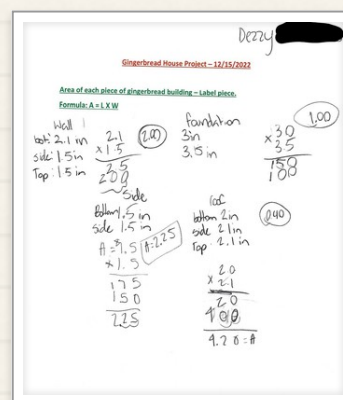 Dezzy
Gingerbread House Project – 12/15/2022
Area of each piece of gingerbread building – Label piece.
Formula: A = L X W
Wall 1
bot: 2.1 in
side: 1.5 in
Top: 1.5 in
2.1
×1.5
2.00
foundation
3in
3.5 in
×30
35
150
1.00
Side
Bottom 1.5 in
side 1.5 in
A = 1.5
×1.5
175
150
225
A=2.25
roof
bottom 2in
side 2.1in
Top 2.1 in
2.0
× 2.1
20
4.20=A